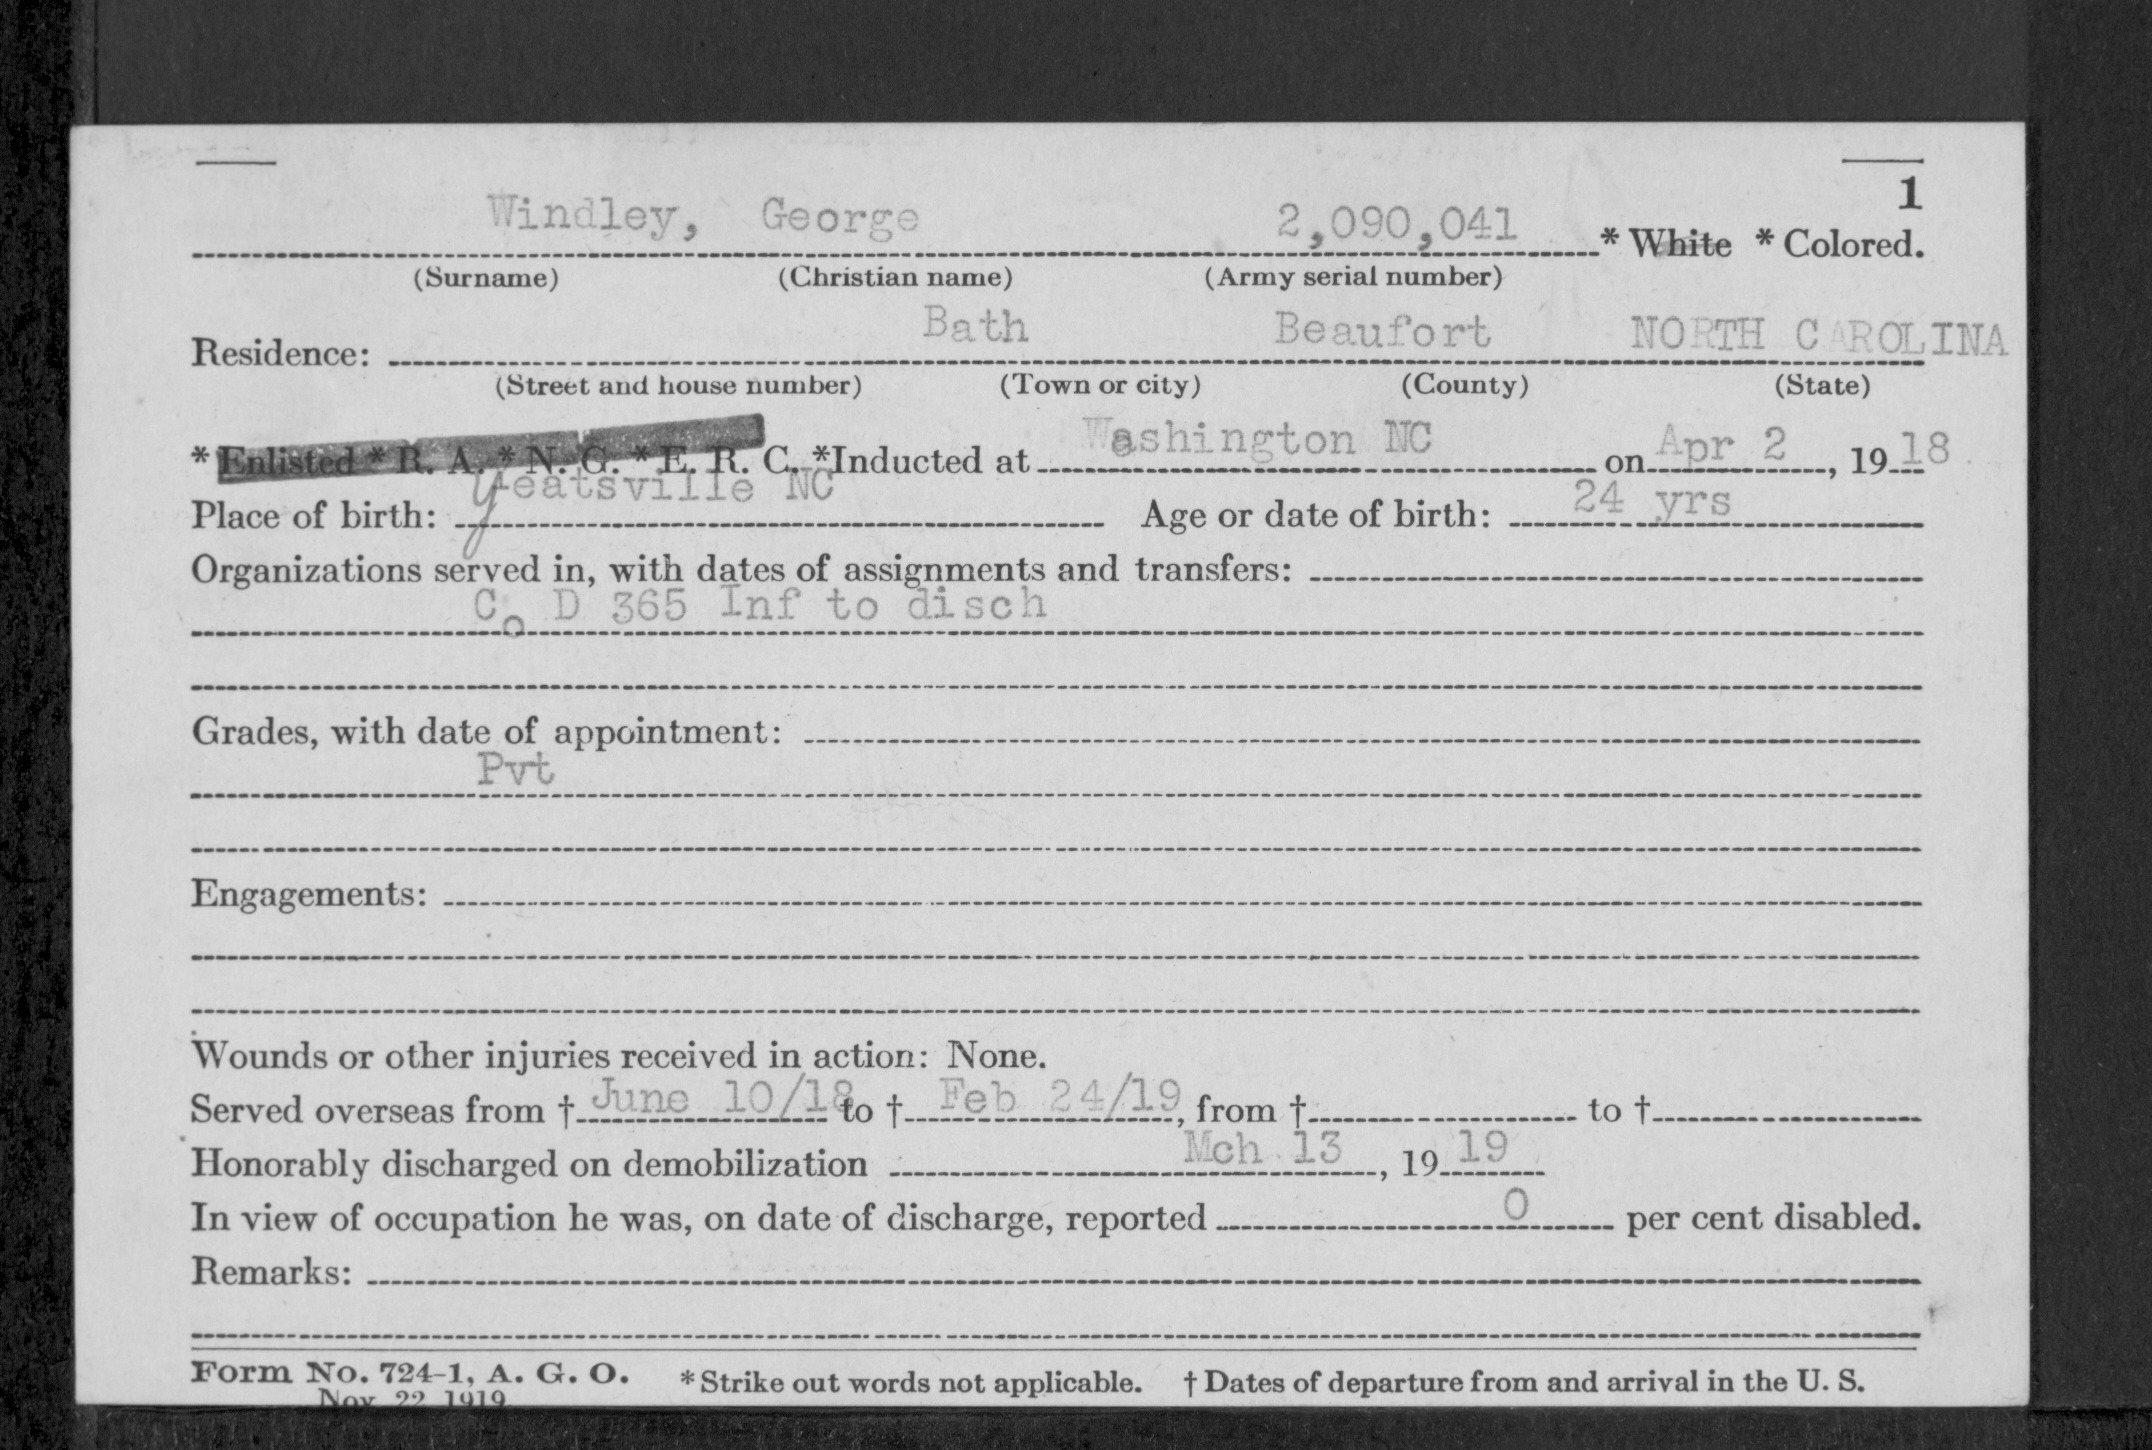 1
Windley, George 2,090,041 * White * Colored.
(Surname) (Christian name) (Army serial number)
Residence: Bath Beaufort NORTH CAROLINA
(Street and house number) (Town or city) (County) (State)
* Enlisted * R. A. * N. G. * E. R. C. *Inducted at Washington NC on Apr 2, 1918
Place of birth: Yeatsville NC Age or date of birth: 24 yrs
Organizations served in, with dates of assignments and transfers:
Co D 365 Inf to disch
Grades, with date of appointment:
Pvt
Engagements:
Wounds or other injuries received in action: None.
Served overseas from † June 10/18 to † Feb 24/19, from † to †
Honorably discharged on demobilization Mch 13, 19 19
In view of occupation he was, on date of discharge, reported 0 per cent disabled.
Remarks:
Form No. 724-1, A. G. O. * Strike out words not applicable. † Dates of departure from and arrival in the U. S.
Nov. 22 1919